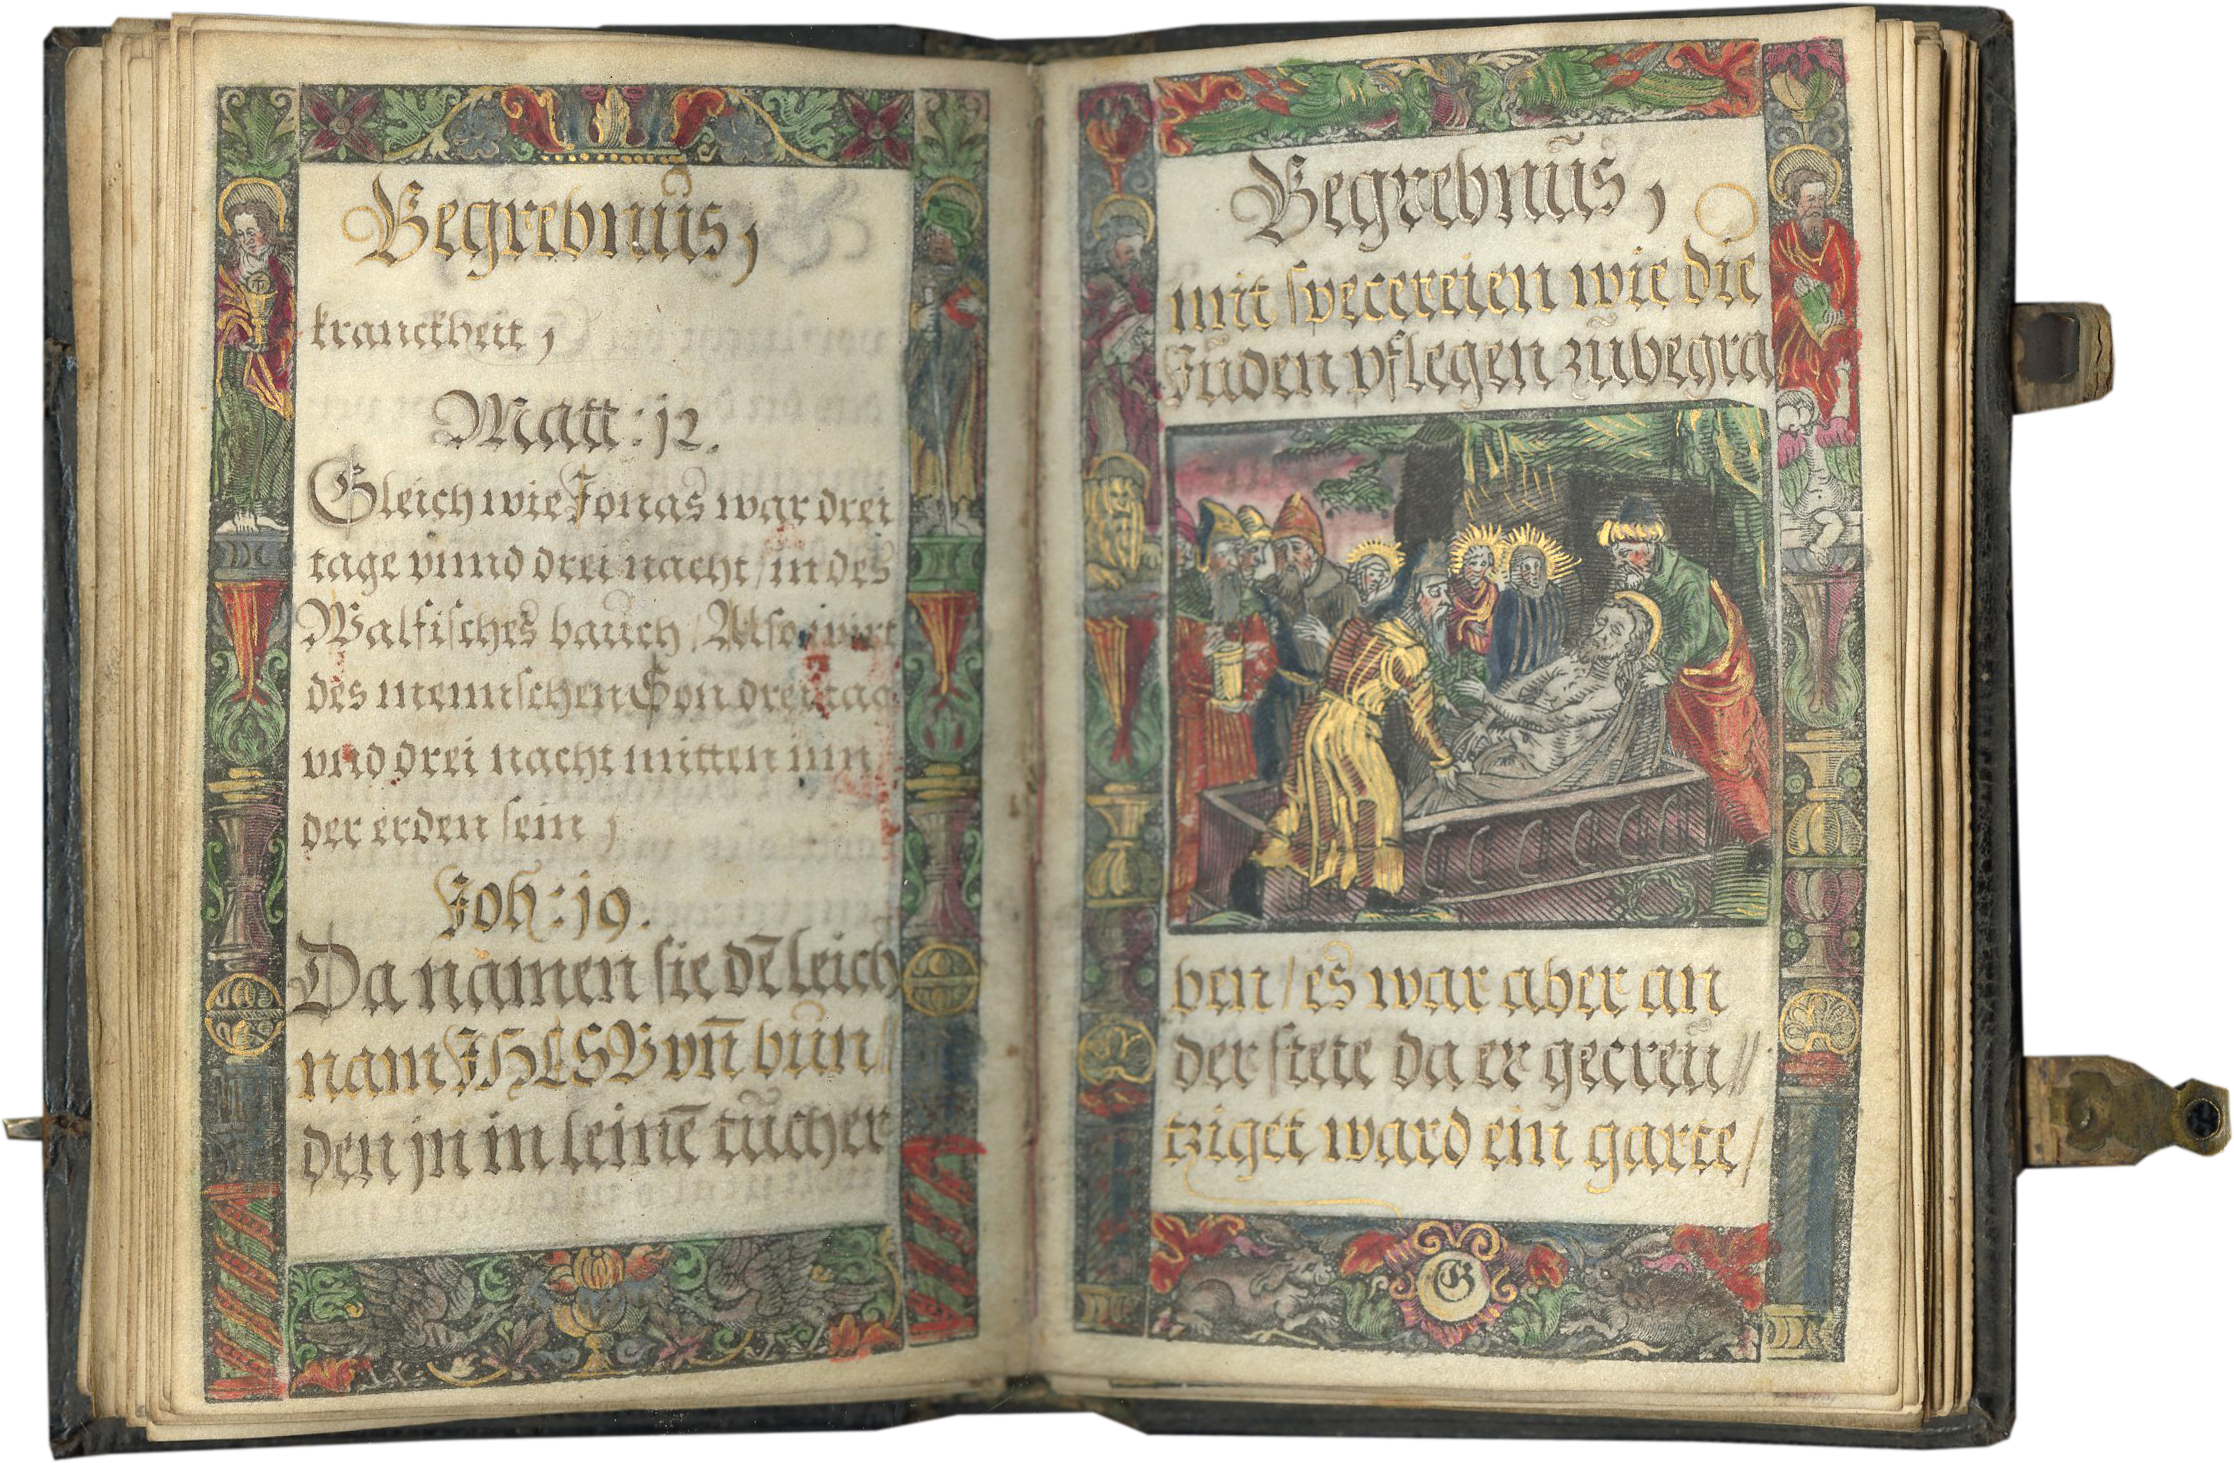 Begrebnüs,
kranckheit,
Matt: j2.
Gleich wie Jonas war drei
tage vnnd drei nacht / in des
Walfisches bauch / Also wirt
des mennschen Son drei tag
vnd drei nacht mitten inn
der erden sein,
Joh: j9.
Da namen sie dē leich
nam JHESV vn̄ bun//
den jn in leinē tücher
Begrebnüs,
mit specereien wie die
Jüden pflegen zübegra
ben / es war aber an
der stete da er gecreü//
tziget ward ein garte/
G